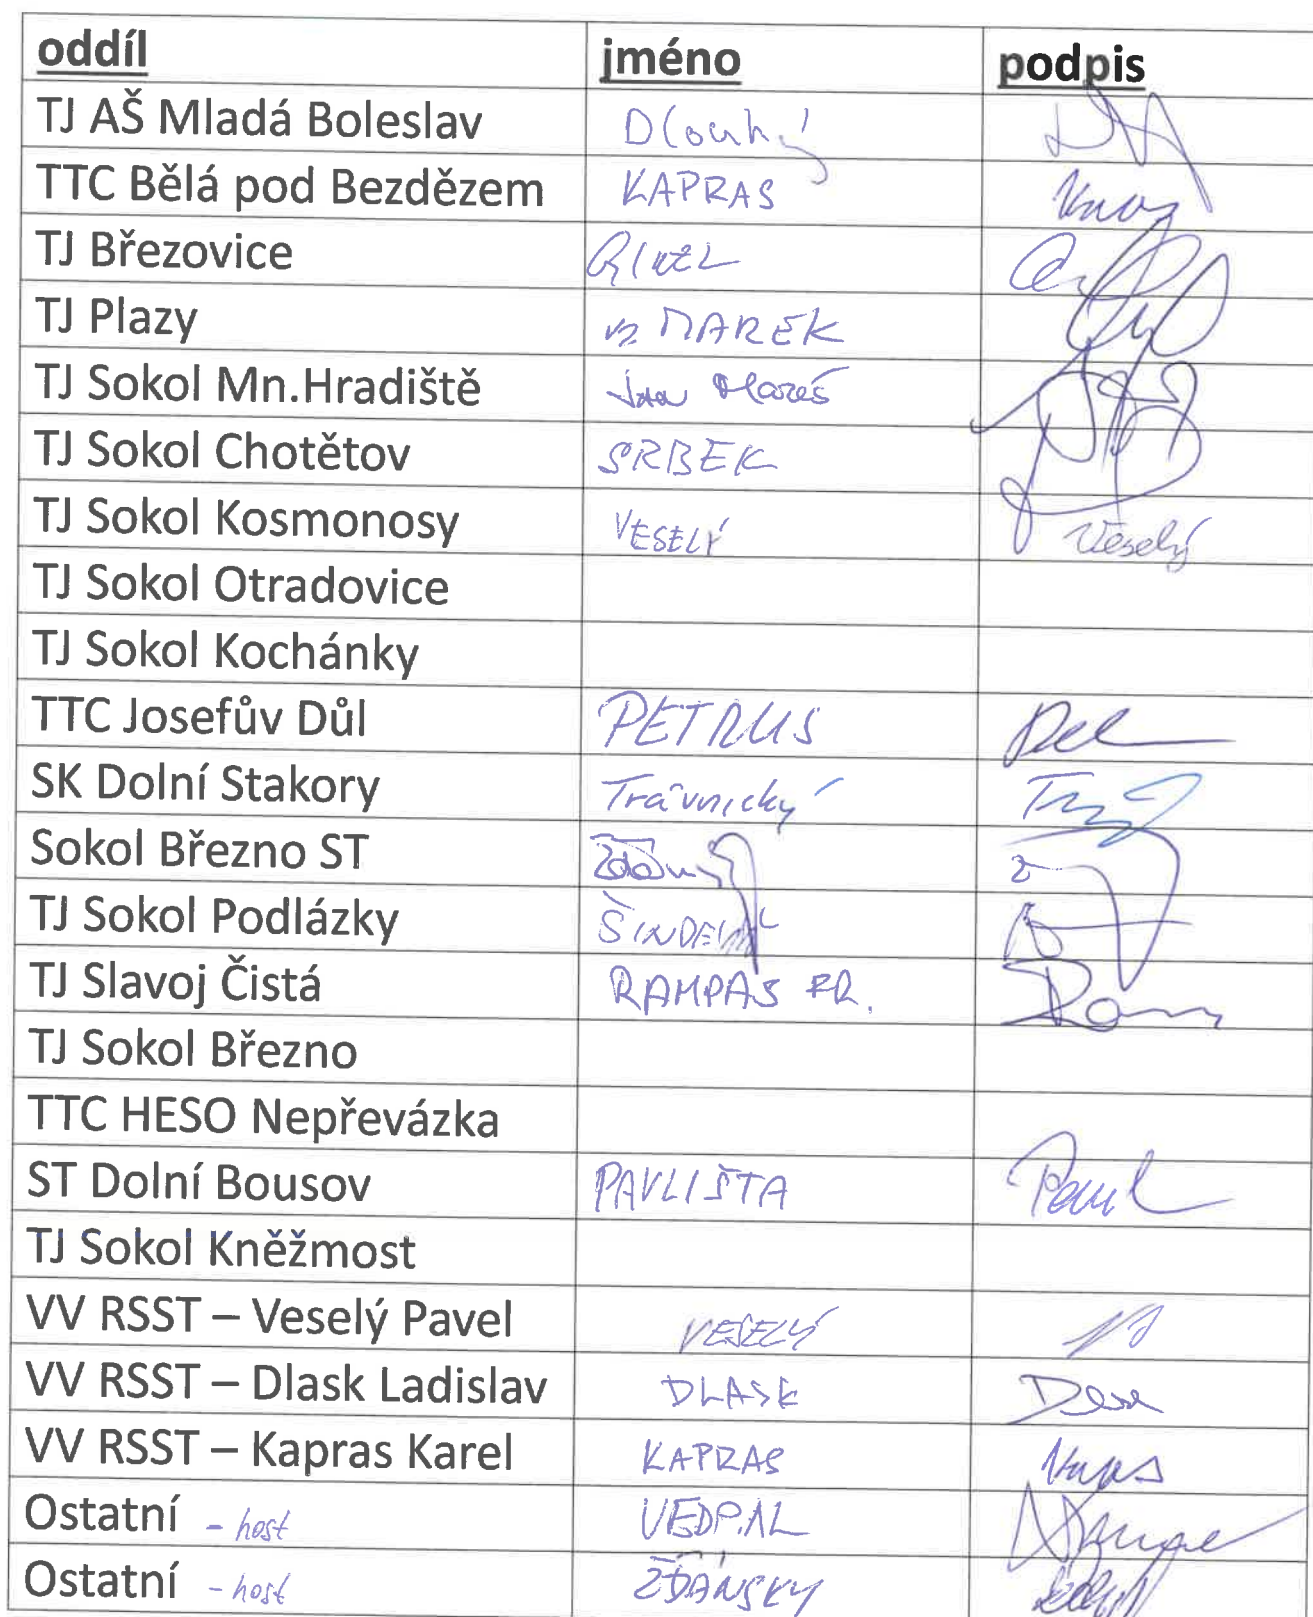 oddíl jméno podpis
TJ AŠ Mladá Boleslav Dlouhý
TTC Bělá pod Bezdězem KAPRAS
TJ Březovice
TJ Plazy vz MAREK
TJ Sokol Mn.Hradiště Jan Mareš
TJ Sokol Chotětov SRBEK
TJ Sokol Kosmonosy VESELÝ Veselý
TJ Sokol Otradovice
TJ Sokol Kochánky
TTC Josefův Důl PETRUS
SK Dolní Stakory Trávnický
Sokol Březno ST
TJ Sokol Podlázky ŠINDELÁŘ
TJ Slavoj Čistá RAMPAS FR.
TJ Sokol Březno
TTC HESO Nepřevázka
ST Dolní Bousov PAVLIŠTA
TJ Sokol Kněžmost
VV RSST – Veselý Pavel VESELÝ
VV RSST – Dlask Ladislav DLASK
VV RSST – Kapras Karel KAPRAS
Ostatní - host VEDRAL
Ostatní - host ŽĎÁNSKÝ